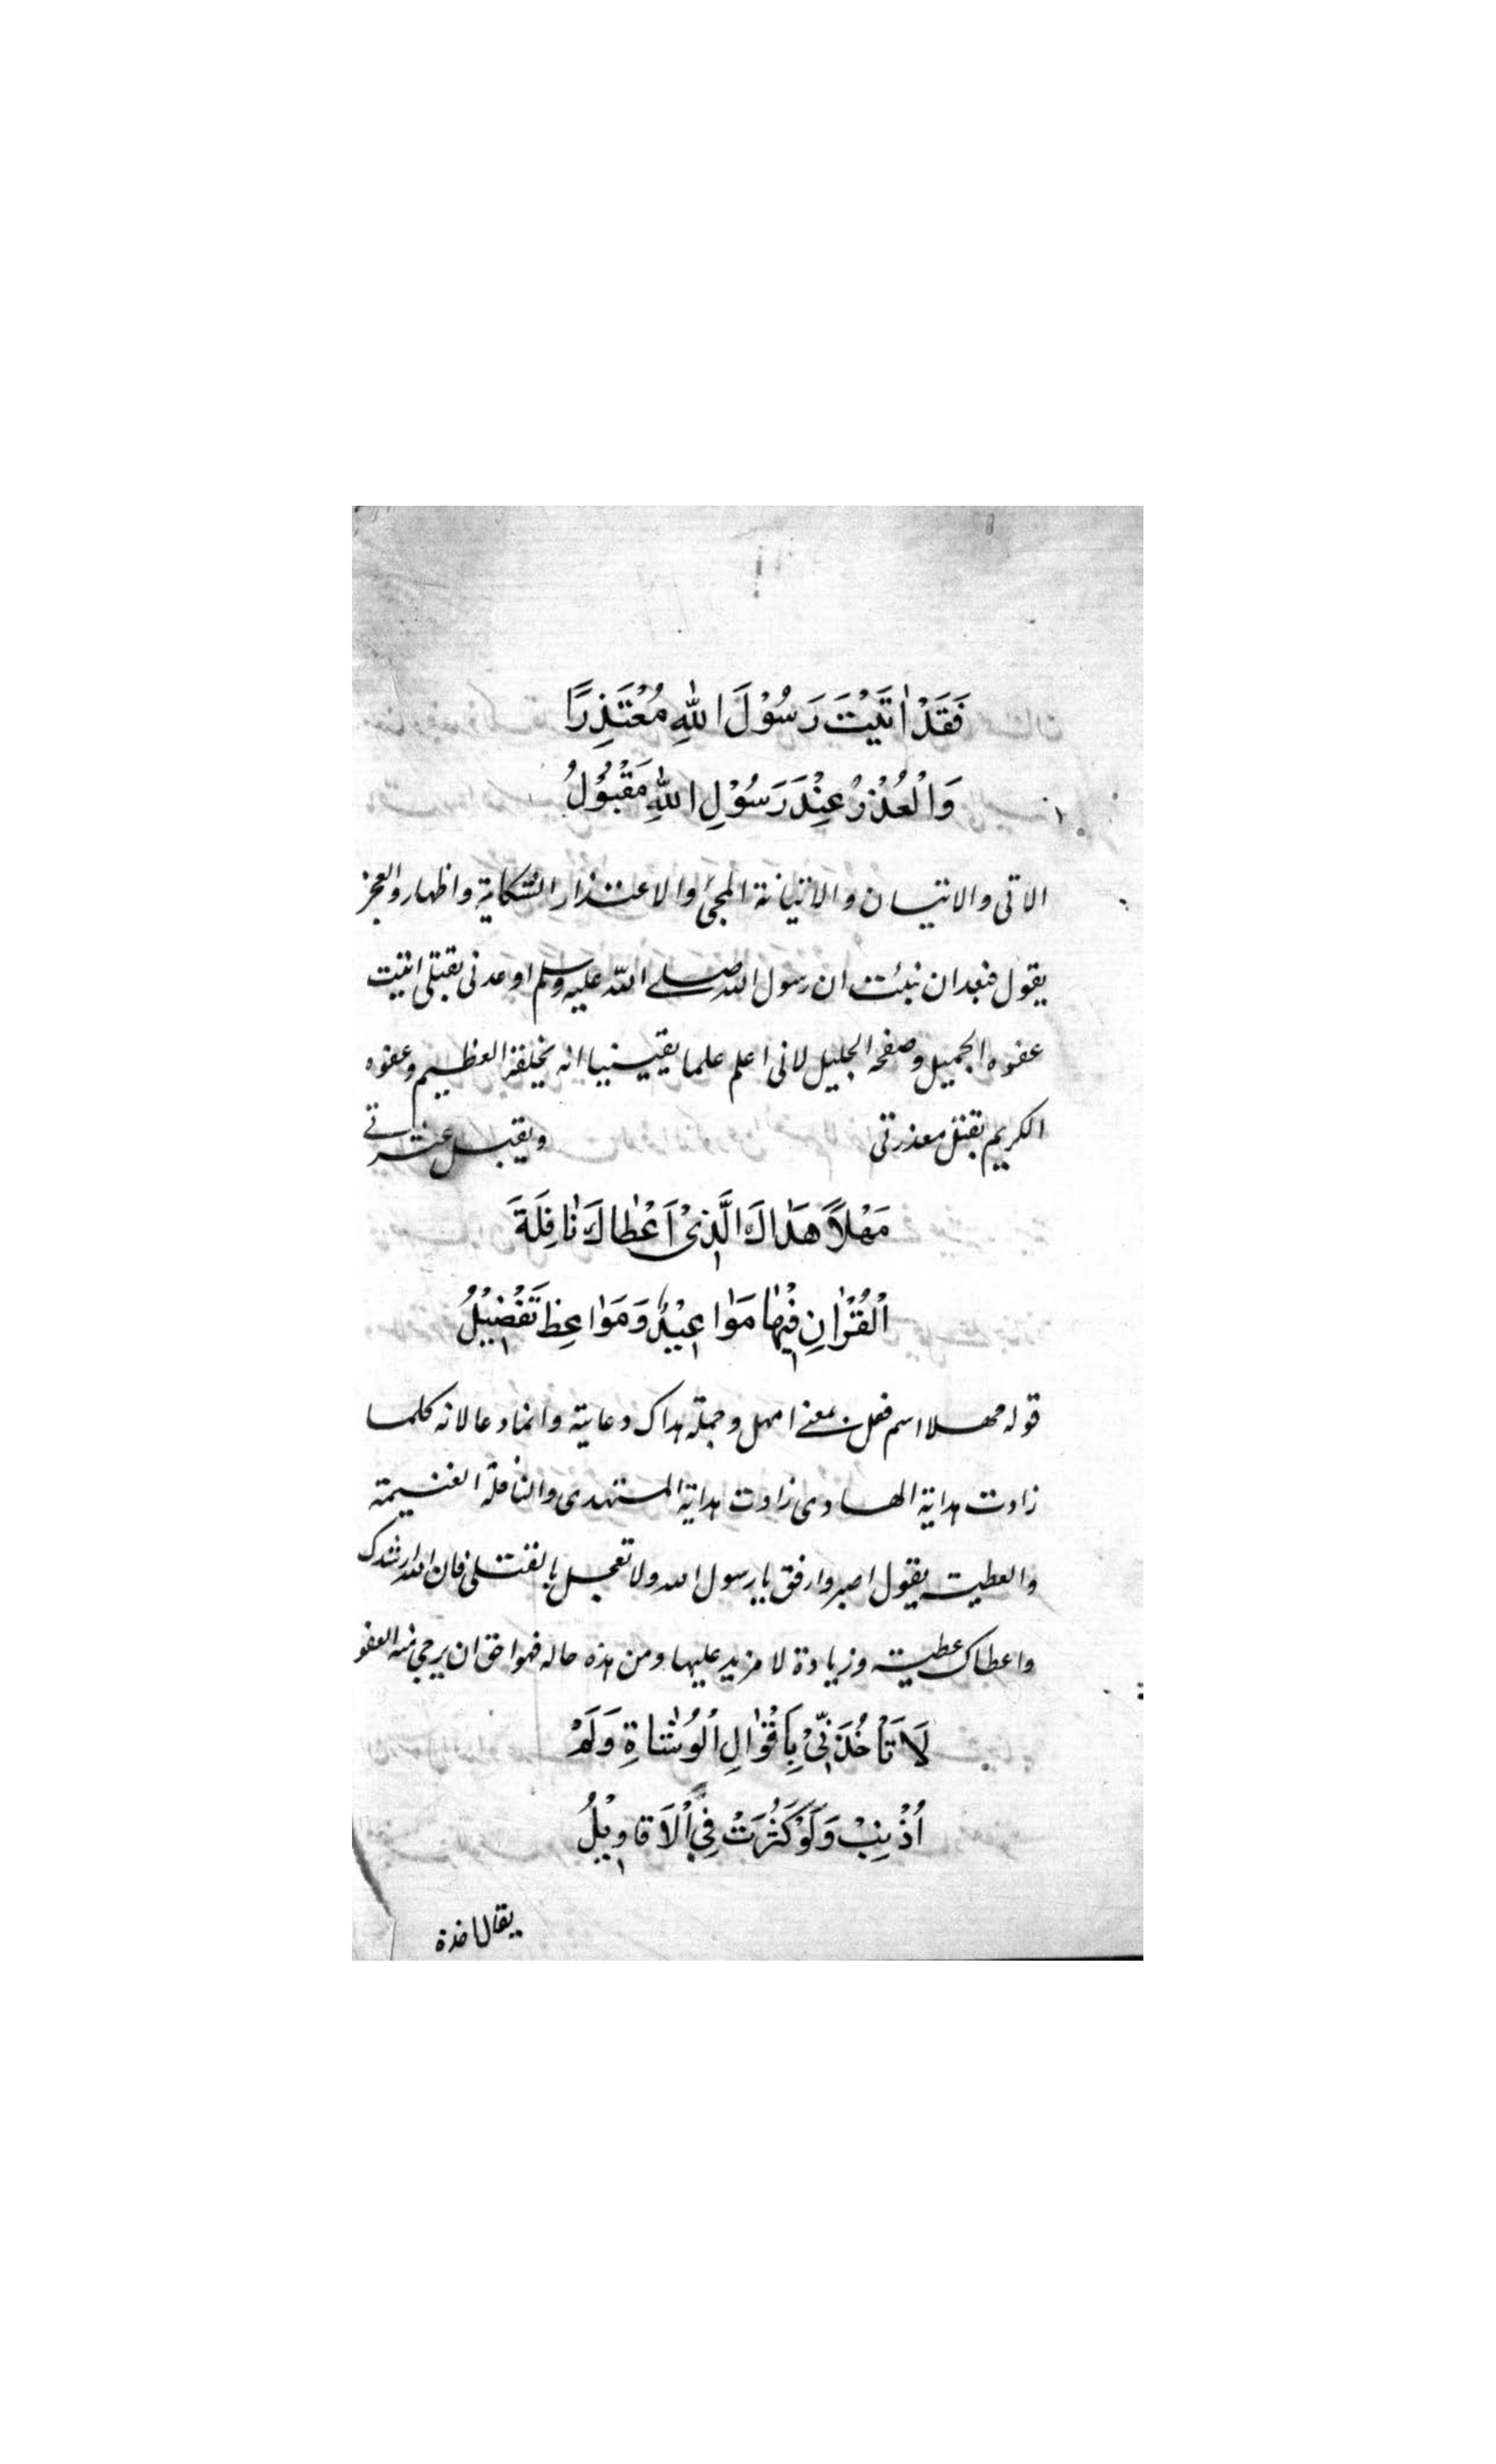 فَقَدْ اَتَيْتَ رَسُوْلَ اللّٰهِ مُعْتَذِرًا
وَالْعُذْرُ عِنْدَ رَسُوْلِ اللّٰهِ مَقْبُوْلُ
الاتى والاتيان والاتيانة المجئ والاعتذار الشكاية واظهار والعجز
يقول فبعد ان نبئت ان رسول الله صلے الله عليه وسلم اوعدنى بقتلى اتيت
عفوه الجميل وصفحه الجليل لانى اعلم علما يقينيا انه بخلقه العظيم وعفوه
الكريم يقبل معذرتى ويقبل عثرتے
مَهْلًا هَدَاكَ الَّذِىْ اَعْطَاكَ نَافِلَةَ
الْقُرْاٰنِ فِيْهَا مَوَاعِيْدٌ وَمَوَاعِظ تَفْضِيْلُ
قوله مهلا اسم فعل بمعنے امهل وجملة هداك دعاية وانما دعا لانه كلما
زادت هداية الهادى زادت هداية المستهدى والنافلة الغنيمة
والعطية يقول اصبر وارفق يا رسول الله ولا تعجل بالقتلى فان الله ارشدك
واعطاك عطية وزيادة لا مزيد عليها ومن هذه حاله فهو احق ان يرجى منه العفو
لَا تَأْخُذَنِّىْ بِاَقْوَالِ الْوُشَاةِ وَلَمْ
اُذْنِبْ وَلَوْ كَثُرَتْ فِىَّ الْاَقَاوِيْلُ
يقال اخذه